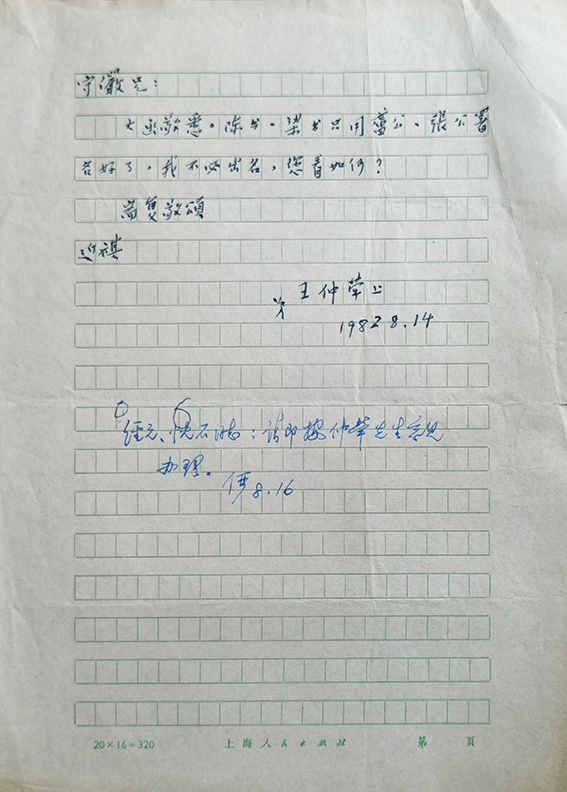 守儼兄：
大函敬悉。陈书、梁书只用蘆公、張公署
名好了，我不必出名，您看如何？
耑復敬頌
近祺
弟 王仲犖上
1982 8.14
经元、悦石同志：请即按仲犖先生意见
办理。
8.16
20×16=320 上海人民出版社 第 页